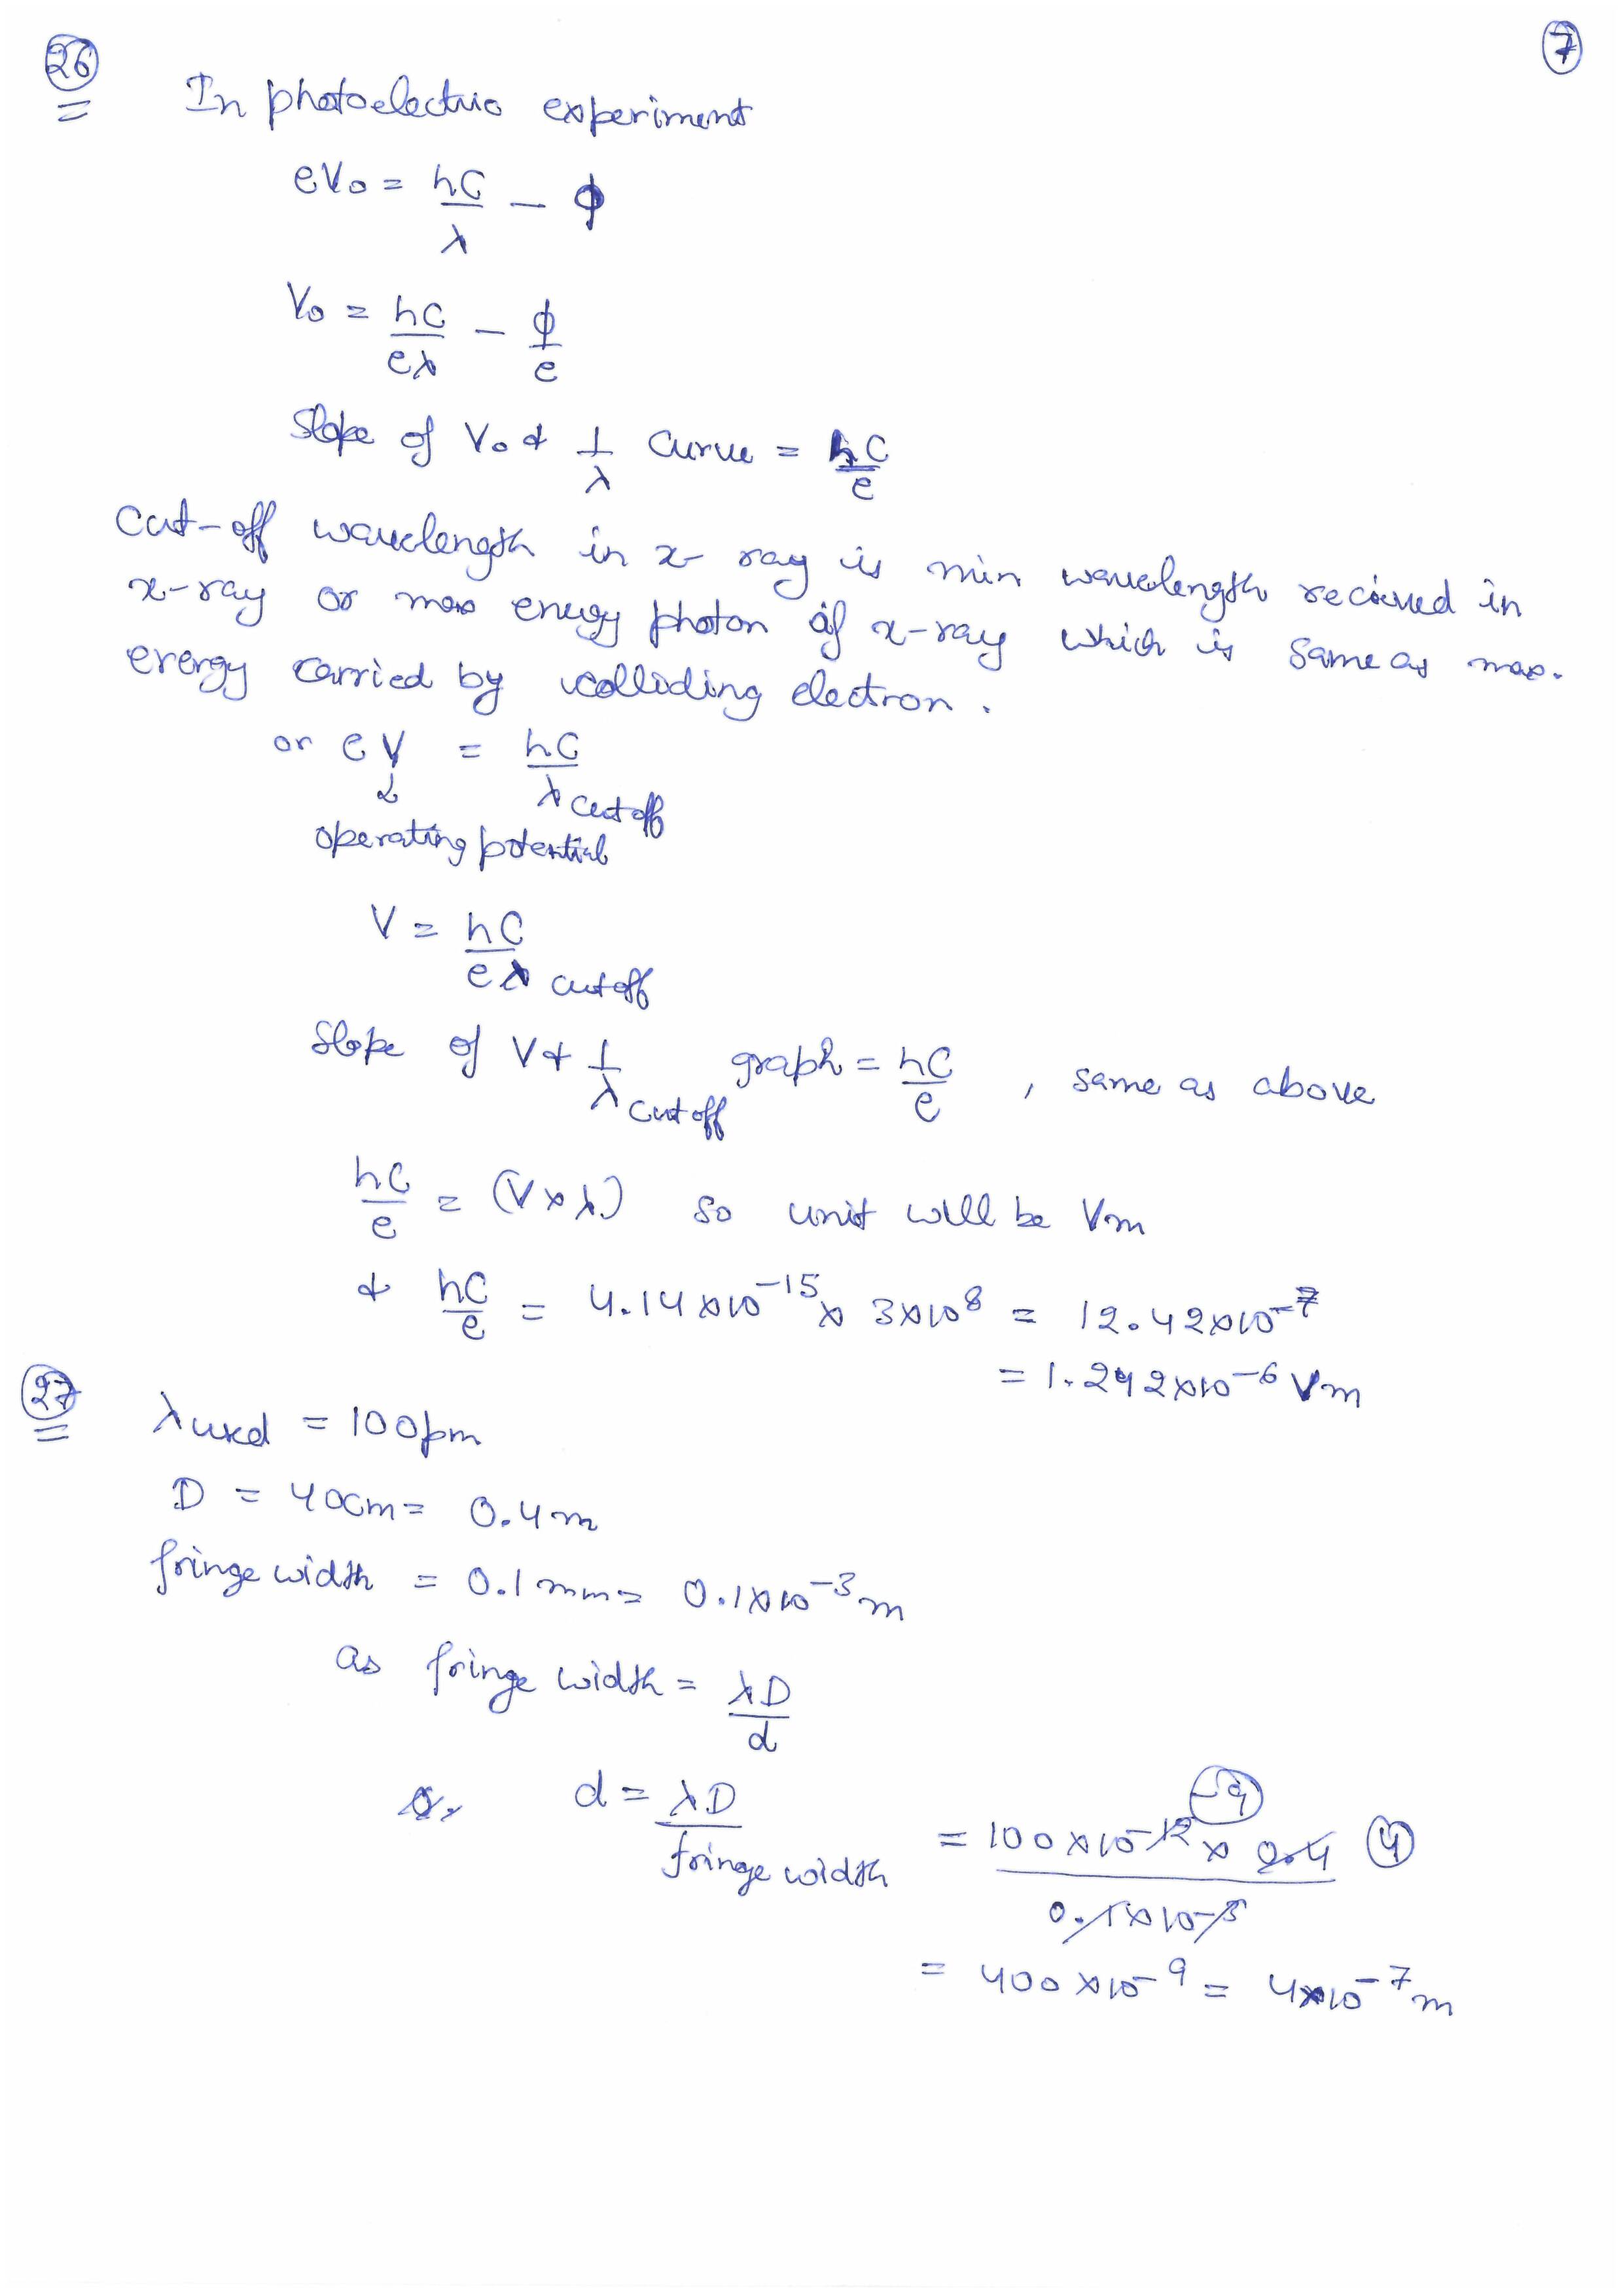 26
7
In photoelectric experiment
eV₀ = hC/λ − ϕ
V₀ = hC/eλ − ϕ/e
Slope of V₀ & 1/λ Curve = hC/e
Cut-off wavelength in x-ray is min wavelength recieved in
x-ray or max energy photon of x-ray which is same as max.
energy carried by colliding electron.
or eV = hC/λ cutoff
operating potential
V = hC/eλ cutoff
Slope of V & 1/λ cutoff graph = hC/e , same as above
hC/e = (V×λ) so unit will be Vm
& hC/e = 4.14×10⁻¹⁵ × 3×10⁸ = 12.42×10⁻⁷
= 1.242×10⁻⁶ Vm
27
λ used = 100pm
D = 40cm = 0.4m
fringe width = 0.1mm = 0.1×10⁻³m
as fringe width = λD/d
or d = λD/fringe width = 100×10⁻¹² × 0.4 / 0.1×10⁻³ -9 4
= 400×10⁻⁹ = 4×10⁻⁷m